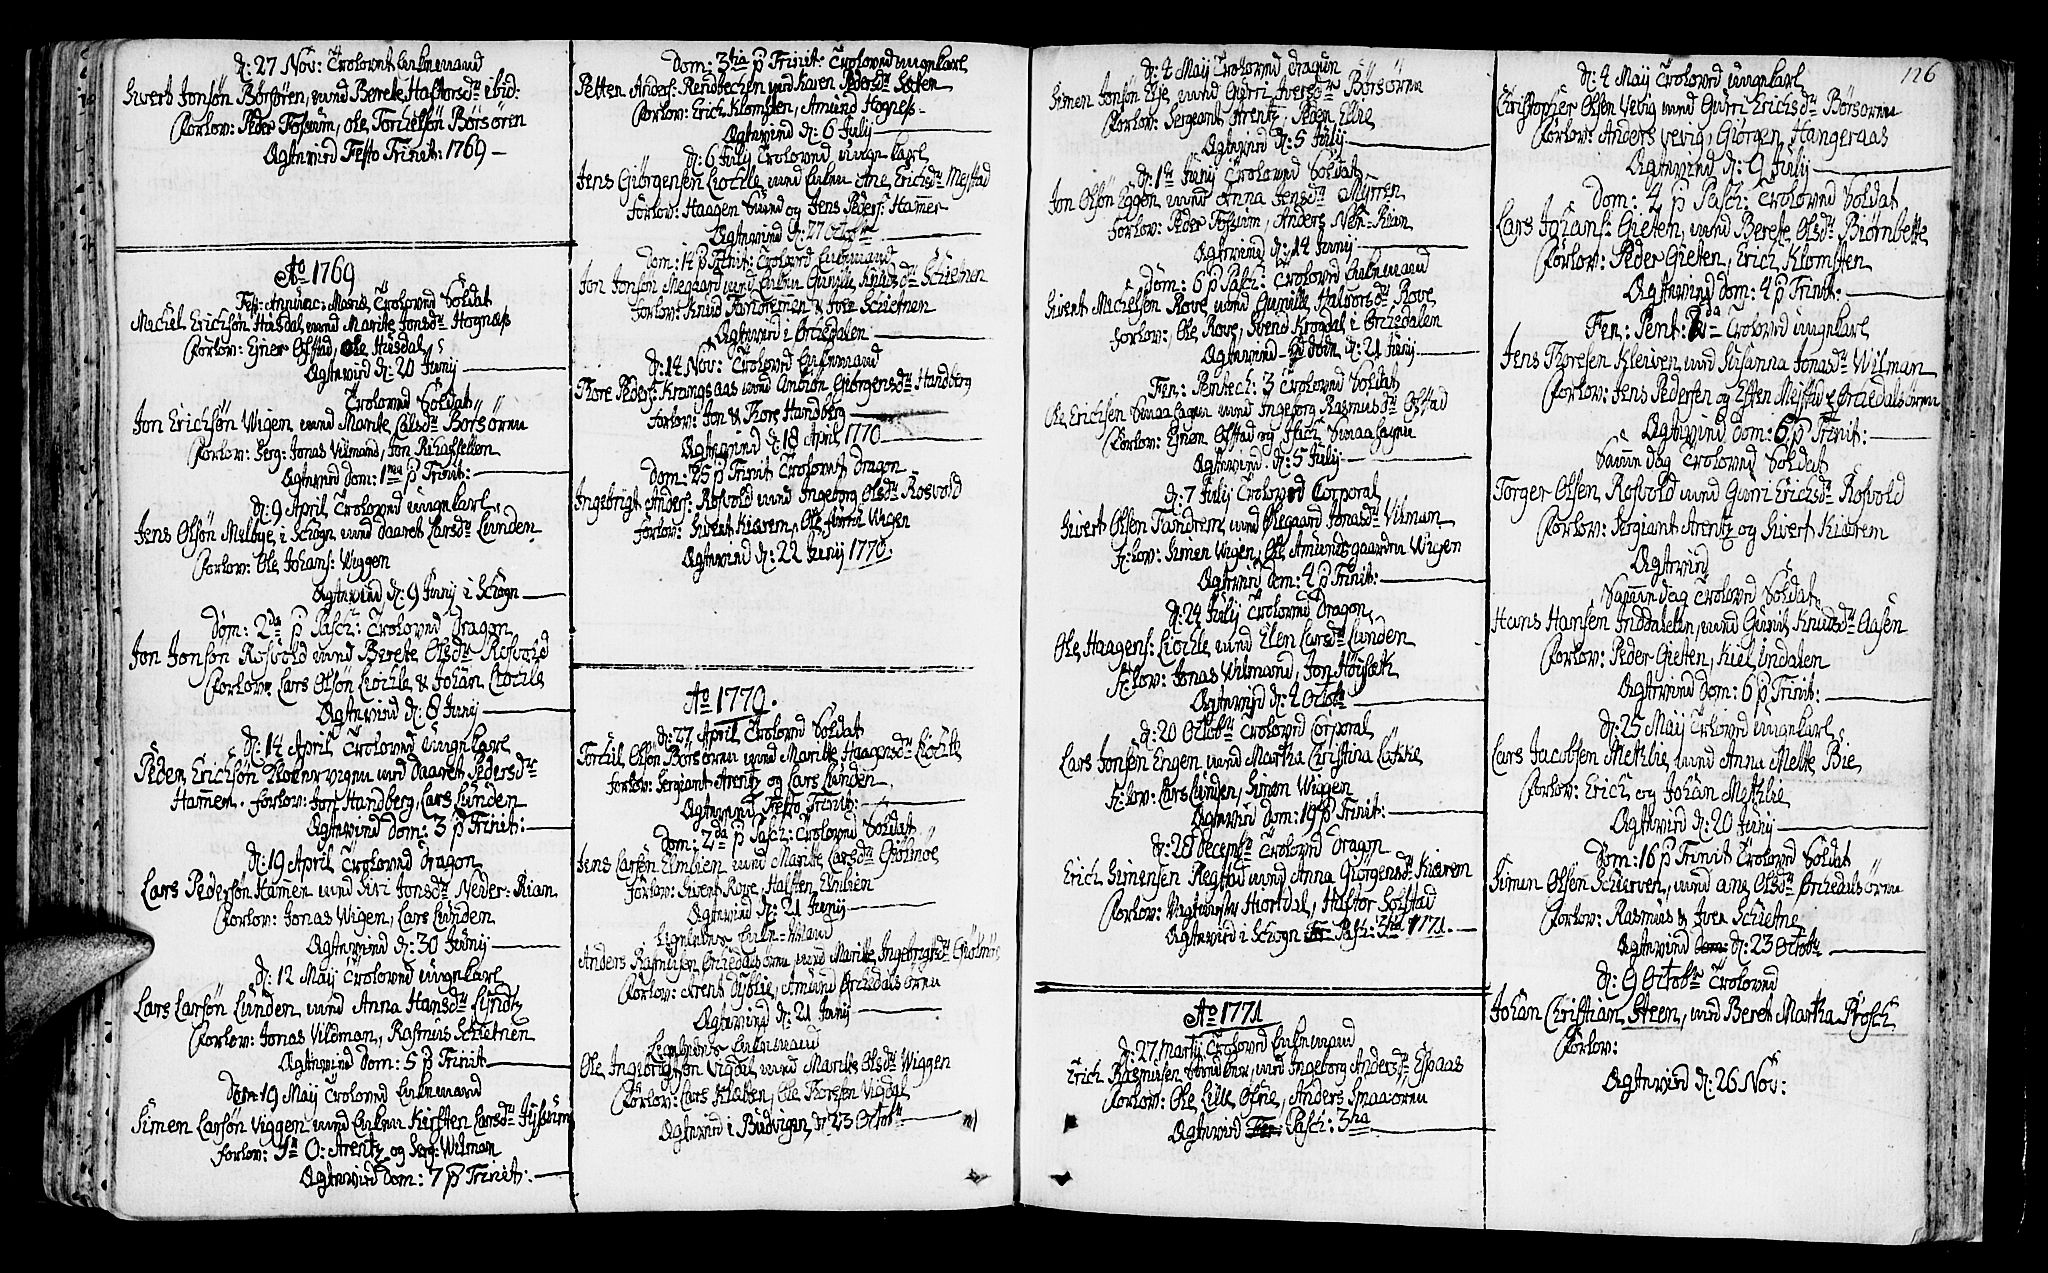 d: 27 Nov: Trolovet Enkemand
Sivert Jonsön Börsören, med Berete Halforsdr ibid:
Forlov: Peder Fossum, Ole Torkelsön Börsören
Egtevied Festo Trinit: 1769
Ao 1769
Fest: Annunc: Mariæ Troloved Soldat
Michel Erichsön Husdal med Marite Jonsdr Hogness
Forlov: Ejner Ofstad, Ole Husdal
Egtevied d: 20 Junij
Troloved Soldat
Jon Erichsön Wigen med Marite Olsdr Börsören
Forlov: Serg: Jonas Vilmand, Jon
Egtevied Dom: 1ma p Trinit:
d: 9 April Troloved ungekarl
Jens Olsön Melbye i Schogn med Daaret Larsdr Lunden
Forlov: Ole Johans: Wiggen
Egtevied d: 9 Junij i Schogn
Dom: 2da p Pasch: Troloved Dragon
Jon Jonsön Rosvold med Berete Olsdr Rosvold
Forlov: Lars Olsön Liochle & Johan Liochle
Egtevied d: 8 Junij
d: 14 April Troloved ungekarl
Peder Erichsön med Daaret Pedersdr
Hammer. Forlov: Jon Handberg, Lars Lunden
Egtevied Dom: 3 p Trinit:
d: 19 April Troloved Dragon
Lars Pedersön Hamen med Siri Jonsdr Neder-Rian
Forlov: Jonas Wigen, Lars Lunden
Egtevied d: 30 Junij
d: 12 Maij Troloved ungekarl
Lars Larsön Lunden med Anna Hansdr
Forlov: Jonas Vildman, Rasmus Schietnen
Egtevied Dom: 5 p Trinit
Dom 19 Maij Troloved Enkemand
Simen Larsön Viggen med Enken Kirsten Larsdr
Forlov: Sr O: Arentz og Serg: Wilman
Egtevied Dom: 7 p Trinit:
Dom: 3tia p Trinit: Troloved ungekarl
Petter Anders: Rendbechen med Karen Pedersdr
Forlov: Erich Klomsten, Amund Hogness
Egtevied d: 6 July
d: 6 July Trolovned ungekarl
Jens Giörgensen Liochle med Enken Ane Erichsdr Meistad
Forlov: Haagen Sund og Jens Peders: Hammer
Egtevied d: 27 Octobr
Dom: 14 p Trinit: Trolovned Enkemand
Jon Jonsön Megaard med Enken Gunille Knudsdr Schietnen
Forlov: Knud & Iver Schietnen
Egtevied i Örchedalen
d: 14 Nov: Trolovned Enkemand
Thore Peders: Krangsaas med Anbiör Giörgensdr Handberg
Forlov: Jon & Thore Handberg
Egtevied d: 18 April 1770
Dom: 25 p Trinit Trolovet Dragon
Ingebrigt Anders: Rosvold med Ingeborg Olsdr Rosvold
Forlov: Sivert Kierem, Ole Wigen
Egtevied d: 22 Junij 1770.
Ao 1770.
d: 27 April Trolovned Soldat
Torchil Olsön Börsören med Marite Haagensdr Liochle
Forlov: Sergiant Arentz og Lars Lunden
Egtevied Festo Trinit:
Dom: 2da p Pasch: Trolovned Soldat
Jens Larsön Emblem med Marite Larsdr Giölmoe
Forlov: Sivert Rove, Halsten Emblem
Egtevied d: 21 Junij
Ligeledes Enke-Mand
Anders Rasmusen Örchedalsören med Marite Ingebrigtsdr Giölmöe
Forlov: Arent Dyblie, Amund Örchedalsören
Egtevied d: 21 Junij
Ligeledes Enkemand
Ole Ingebrigtsön Vigdal med Marite Olsdr Wiggen
Forlov: Lars Kletten, Ole Thorsten Vigdal
Egtevied i Budvigen d: 23 Octobr
d: 4 Maij Trolovned Dragun
Simen Jonsön Elje med Gurri Iversdr Börsören
Forlov: Sergeant Arentz, Peder Elie
Egtevied d: 5 July
d: 1te Junij Trolovned Soldat
Jon Olsön Eggen med Anna Jensdr Myrren
Forlov: Peder Fossum, Anders Neh-Rian
Egtevied d: 14 Junij
Dom: 6 p Pasch: Trolovned Enkemand
Sivert Michelsen Rove med Gunille Halvorsdr Rove
Forlov: Ole Rove, Svend Krogdal i Örchedalen
Egtevied d: 21 Junij
Fer: Pentech: 3 Trolovned Soldat
Ole Erichsen Smaalagen med Ingeborg Rasmusdr Ofstad
Forlov: Ejner Ofstad og Smaalagen
Egtevied d: 5 Julij
d: 7 Julij Trolovned Corporal
Sivert Olsen Tundrem med Olegaard Jonasdr Vilman
F:lov: Simen Wigen, Ole Amundsgaarden Wigen
Egtevied Dom: 4 p Trinit:
d: 24 Julij Trolovned Dragon
Ole Haagens: Liochle med Elen Larsdr Lunden
F:lov: Jonas Vilmand, Jon Höisæth
Egtevied d: 4 Octobr
d: 20 Octobr Trolovned Corporal
Lars Jonsön Engen med Martha Christina
F:lov: Lars Lunden, Simon Wiggen
Egtevied Dom: 19 p Trinit:
d: 28 Decembr Trolovned Dragon
Erich Simensen Regstad med Anna Giörgensdr Kierem
Forlov: Hiortdal, Halftor Solstad
Egtevied i Schogn Pasch: 3tia 1771.
Ao 1771
d: 27 Martij Trolovned Enkemand
Erich Rasmusen med Ingeborg Andersdr Espaas
Forlov: Ole Lille Ofne, Anders Smaaören
Egtevied Fer: Pasch: 3tia
126
d: 4 Maij Trolovned ungekarl
Christopher Olsen Vevig med Gurri Erichsdr Börsören
Forlov: Anders Vevig, Giörgen Hangeraas
Egtevied d: 9 Julij
Dom: 4 p Pasch: Trolovned Soldat
Lars Johans: Gieten, med Berete Olsdr Biörnbette
Forlov: Peder Gieten, Erich Klomsten
Egtevied Dom: 4 p Trinit:
Fer: Pent: 2da Trolovned ungekarl
Jens Thoresen Kleiven med Susanna Jonasdr Wilman
Forlov: Jens Pedersen og Esten Meistad Örchedalsören
Egtevied Dom: 6 p Trinit:
Samme dag Trolovned Soldat
Torger Olsen Rosvold med Gurri Erichsdr Rosvold
Forlov: Sergiant Arentz og Sivert Kierem
Egtevied
Samme dag Trolovned Soldat
Hans Hansen Inddalen, med Gunil Knudsdr Aasen
Forlov: Peder Gieten, Kiel Indalen
Egtevied Dom: 6 p Trinit:
d: 25 Maij Trolovned ungekarl
Lars Jacobsen Methlie med Anna Melte Bie
Forlov: Erich og Johan Methlie
Egtevied d: 20 Junij
Dom: 16 p Trinit Trolovned Soldat
Simen Olsen Schierven, med Ane Olsdr Örchedalsören
Forlov: Rasmus & Iver Schietne
Egtevied Dom: d: 23 Octobr
d: 9 Octobr Trolovned
Johan Christian Steen, med Beret Martha Prosch
Forlov:
Egtevied d: 26 Nov: